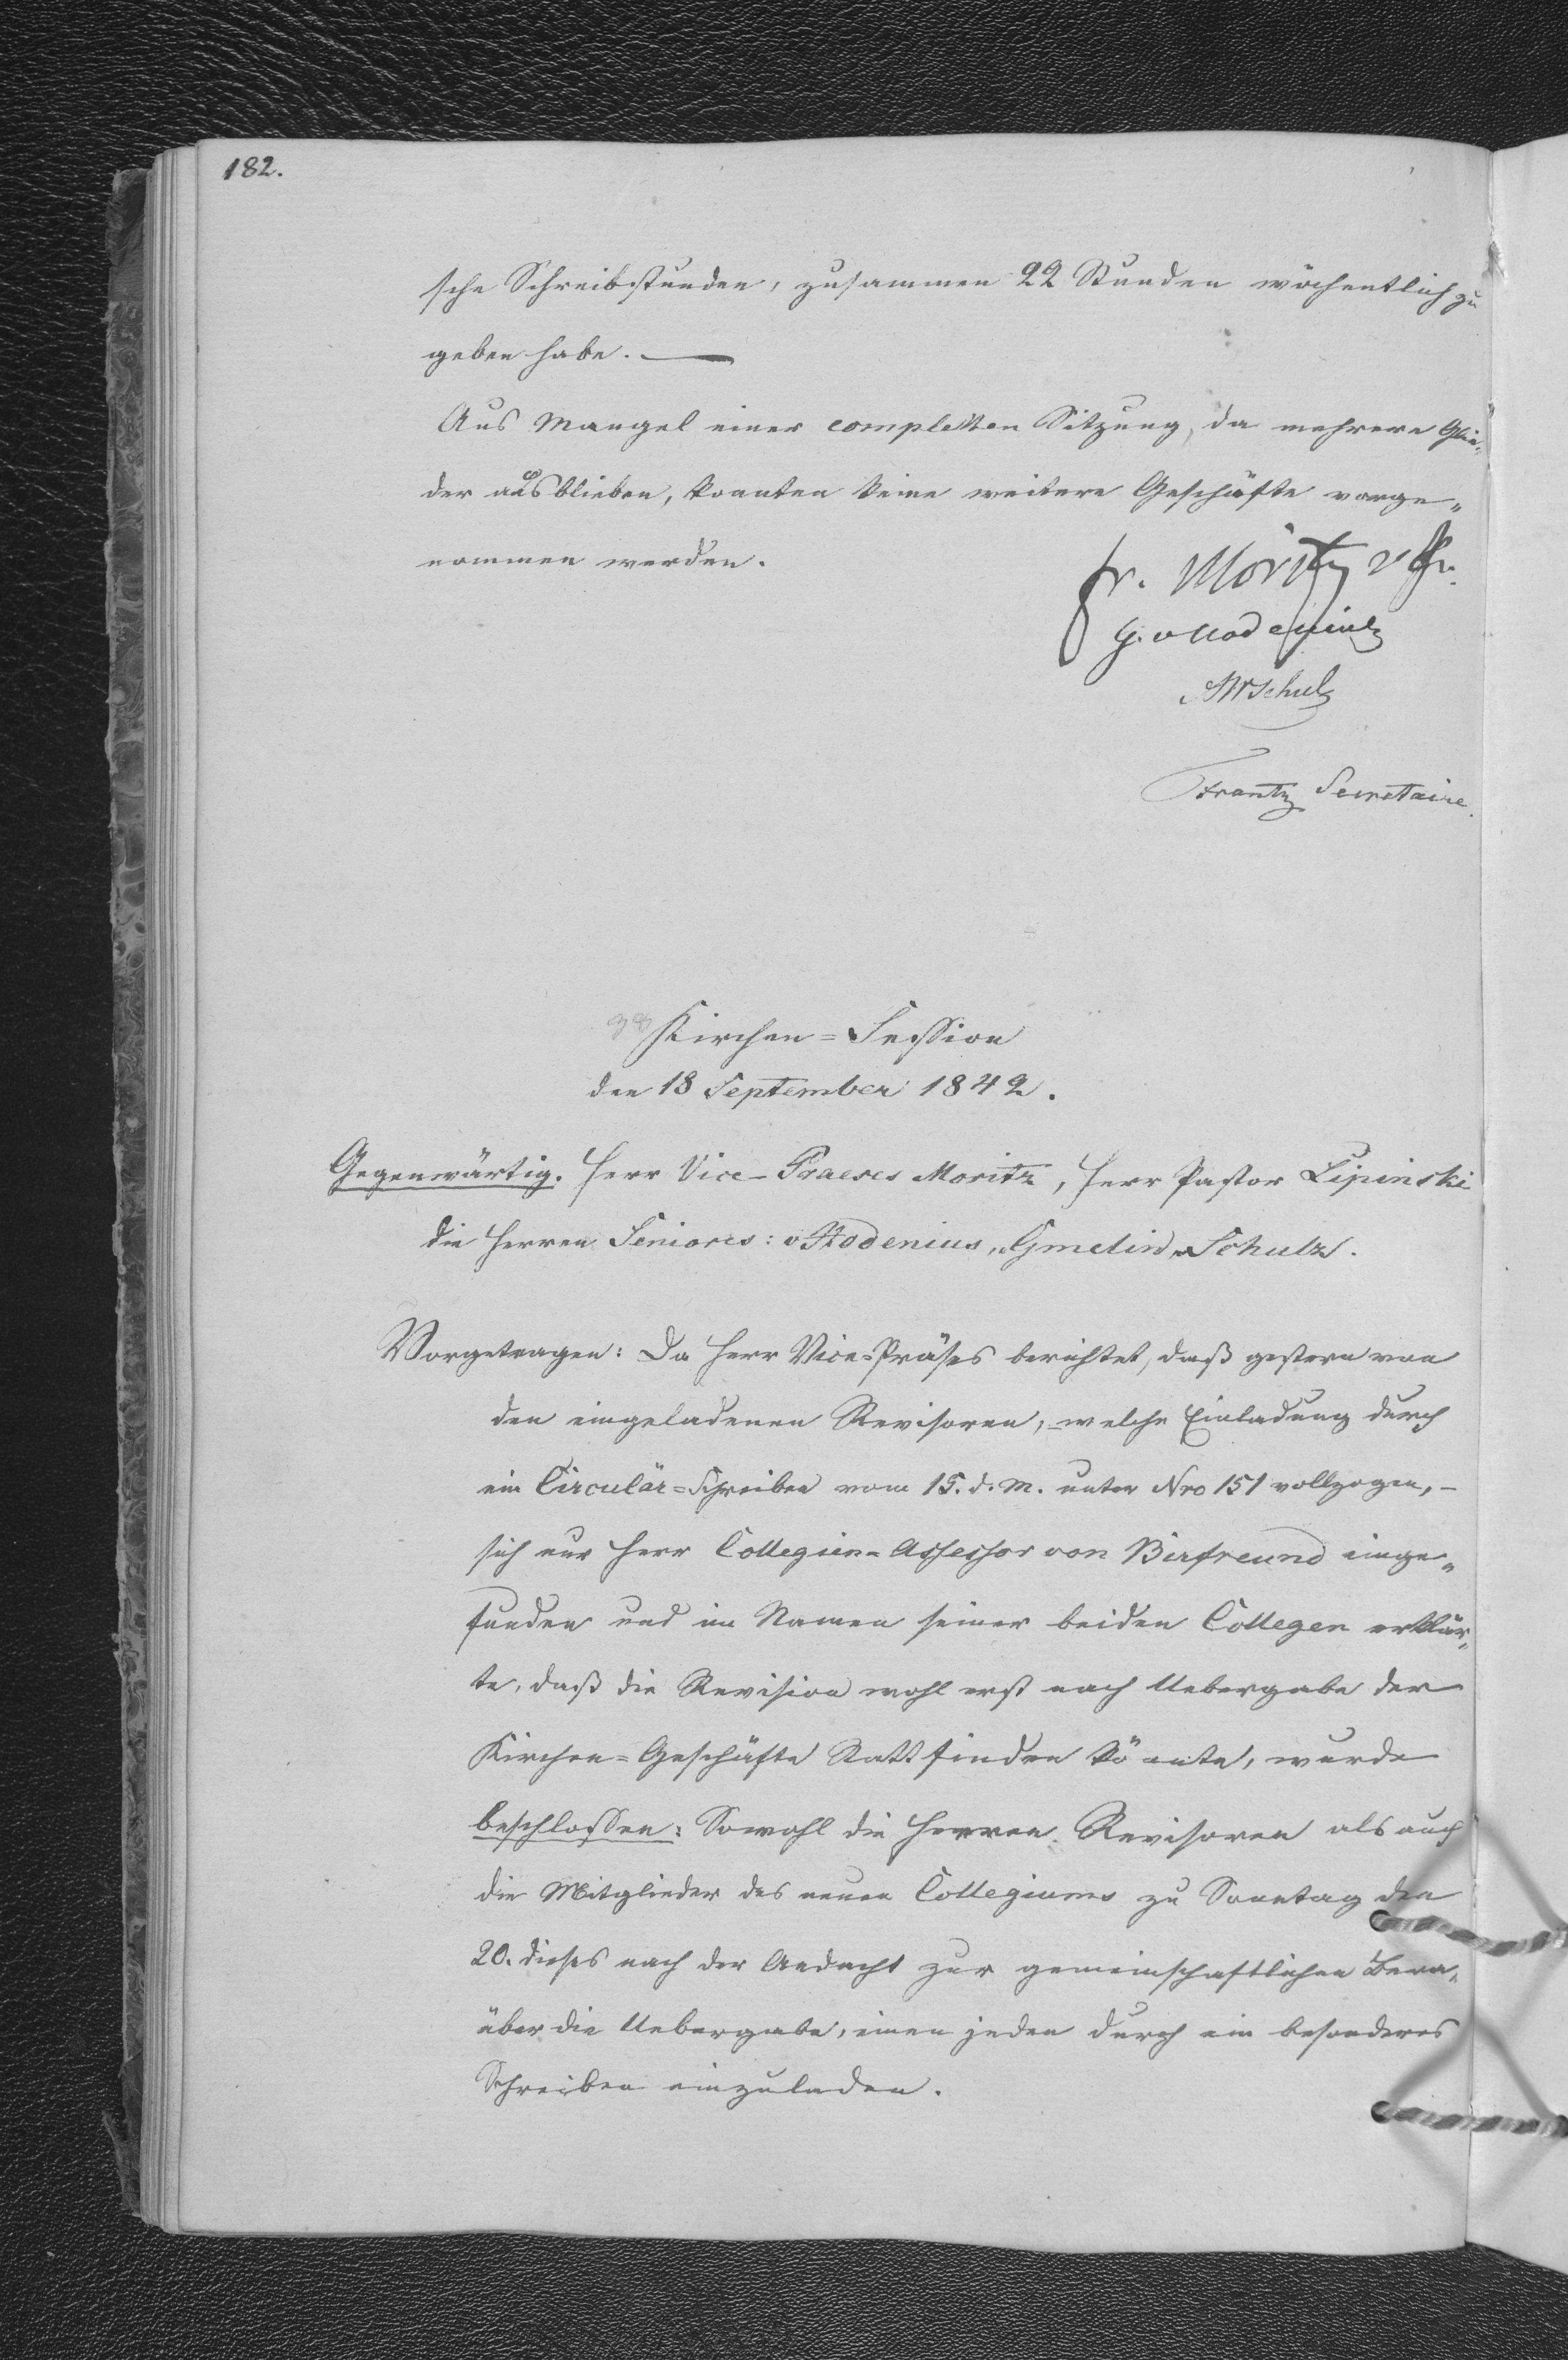 182.
sche Schreibstunden, zusammen 22 Stunden wöchentlich zu
geben habe. —
Aus Mangel einer completten Sitzung, da mehrere Glie-
der ausblieben, konnten keine weitere Geschäfte vorge-
nommen werden.
Fr. Moritz
Schulz
Frantz Secretaire.
38 Kirchen=Session
den 18 September 1842.
Gegenwärtig. Herr Vice-Praeses Moritz, Herr Pastor Lipinski
die Herren Seniores: v Stodenius, Gmelin, Schulz.
Vorgetragen: Da Herr Vice=Präses berichtet, daß gestern von
den eingeladenen Revisoren, – welche Einladung durch
ein Circulär=Schreiben vom 15. d. M. unter Nro 151 vollzogen, –
sich nur Herr Collegien-Assessor von Birfreund einge-
funden und im Namen seiner beiden Collegen erklär-
te, daß die Revision wohl erst nach Uebergabe der
Kirchen=Geschäfte Statt finden könnte, wurde
beschlossen: Sowohl die Herren Revisoren als auch
die Mitglieder des neuen Collegiums zu Sonntag den
20. dieses nach der Andacht zur gemeinschaftlichen Bera-
über die Uebergabe, einen jeden durch ein besonderes
Schreiben einzuladen.